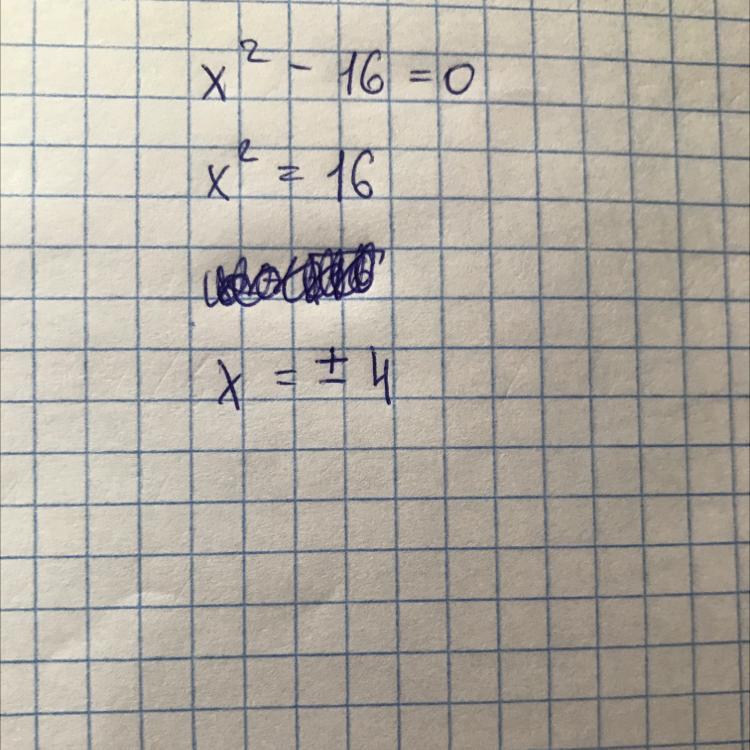 x² - 16 = 0
x² = 16
x = ± 4